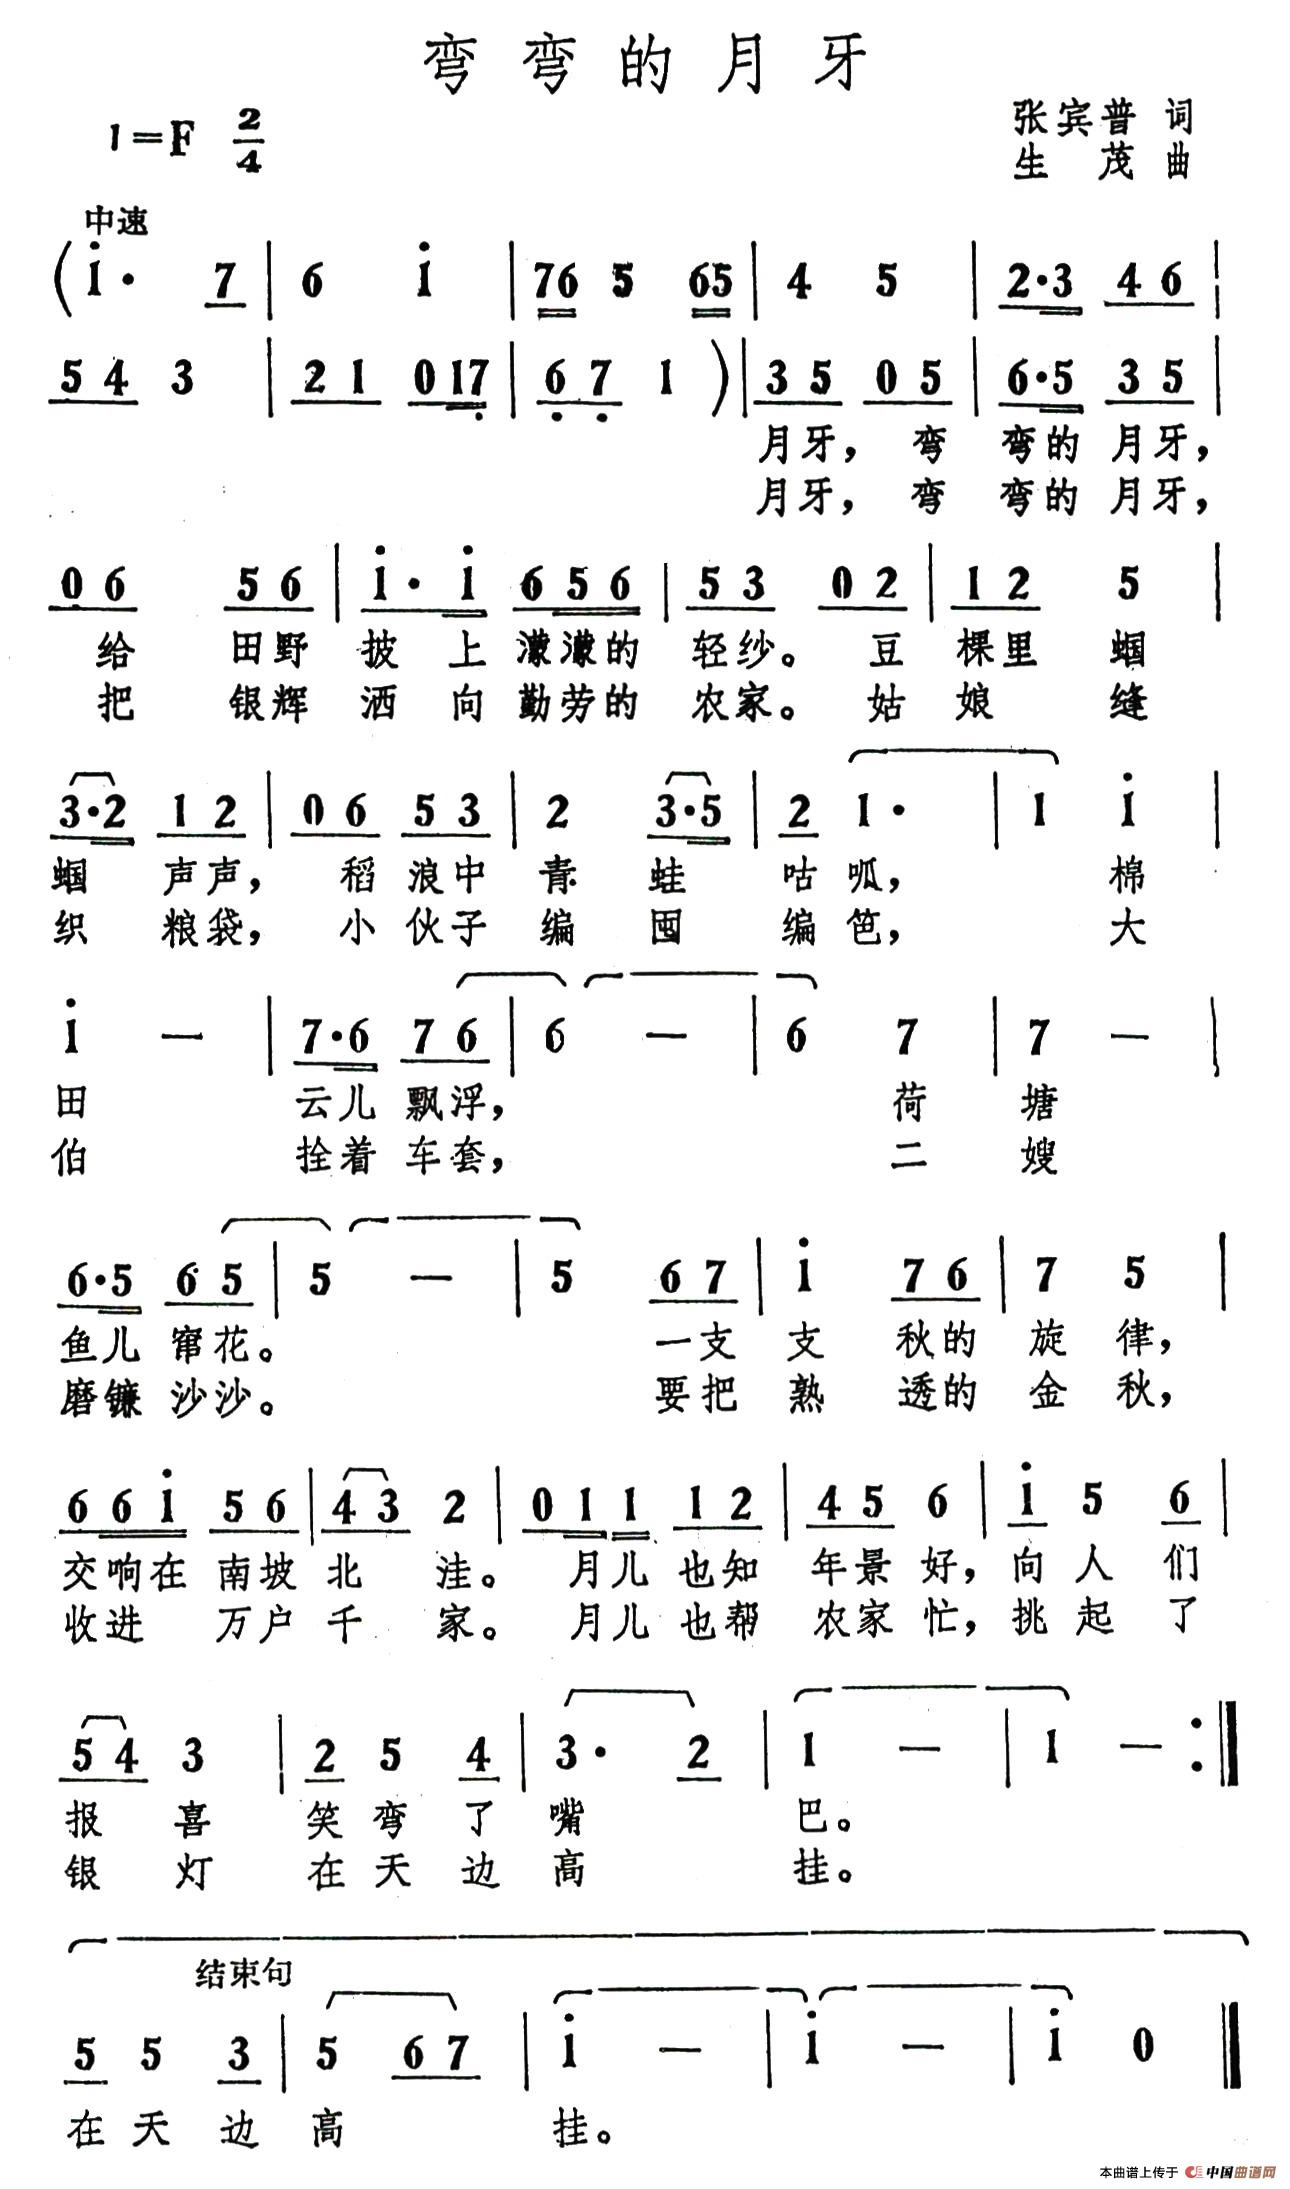 弯弯的月牙
1=F 2/4
张宾普 词
生 茂 曲
中速
(i· 7 | 6 i | 76 5 65 | 4 5 | 2·3 4 6 |
5 4 3 | 2 1 0 17 | 6 7 1 ) | 3 5 0 5 | 6·5 3 5 |
月牙，弯 弯的 月牙，
月牙，弯 弯的 月牙，
0 6 5 6 | i · i 6 5 6 | 5 3 0 2 | 1 2 5 |
给 田野 披 上 濛濛的 轻纱。 豆 棵里 蝈
把 银辉 洒 向 勤劳的 农家。 姑 娘 缝
3·2 1 2 | 0 6 5 3 | 2 3·5 | 2 1· | 1 i |
蝈 声声， 稻 浪中 青 蛙 咕 呱， 棉
织 粮袋， 小 伙子 编 囤 编 笆， 大
i — | 7·6 7 6 | 6 — | 6 7 | 7 — |
田 云儿 飘浮， 荷 塘
伯 拴着 车套， 二 嫂
6·5 6 5 | 5 — | 5 6 7 | i 7 6 | 7 5 |
鱼儿 窜花。 一支 支 秋的 旋 律，
磨镰 沙沙。 要把 熟 透的 金 秋，
6 6 i 5 6 | 4 3 2 | 0 1 1 1 2 | 4 5 6 | i 5 6 |
交响在 南坡 北 洼。 月儿 也知 年景 好，向 人 们
收进 万户 千 家。 月儿 也帮 农家 忙，挑 起 了
5 4 3 | 2 5 4 | 3· 2 | 1 — | 1 — :|
报 喜 笑 弯 了 嘴 巴。
银 灯 在 天 边 高 挂。
结束句
5 5 3 | 5 6 7 | i — | i — | i 0 |
在 天 边 高 挂。
本曲谱上传于 中国曲谱网